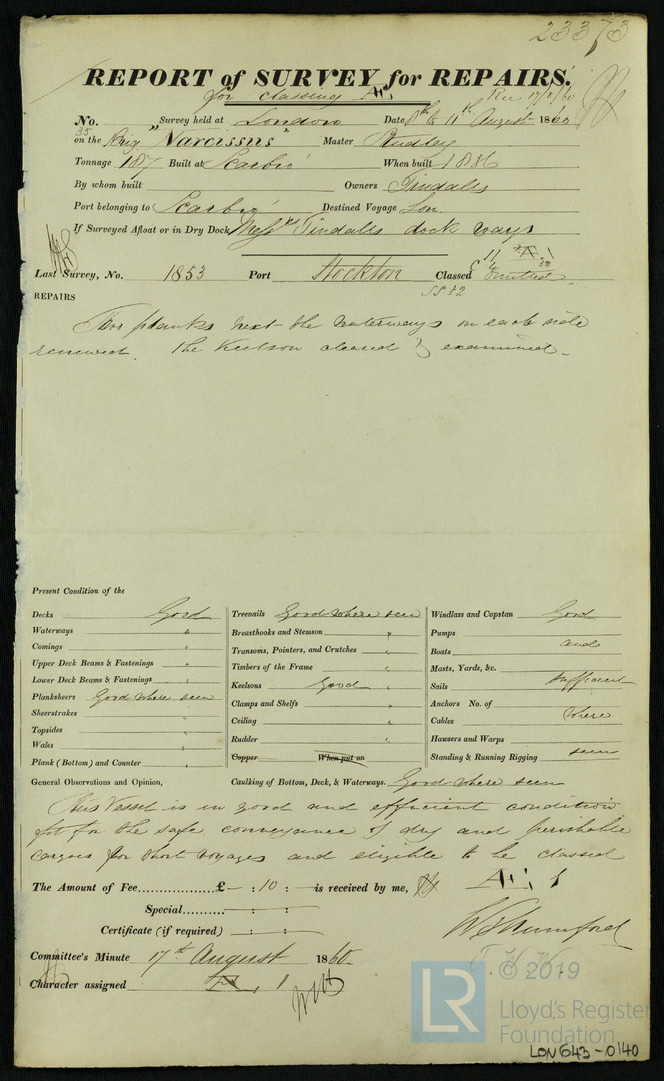 23373
REPORT of SURVEY for REPAIRS.
for classing Æ1
No. Survey held at London Date 8th & 11th August 1860
35 on the Brig "Narcissus" Master
Tonnage 187 Built at Scarbro' When built 1836
By whom built Owners Tindalls
Port belonging to Scarbro' Destined Voyage Lon.
If Surveyed Afloat or in Dry Dock Messrs Tindalls dock ways
Last Survey, No. 1853 Port Stockton Classed
REPAIRS
Two planks next the waterways on each side
renewed. The Keelson cleared & examined.
Present Condition of the
Decks Good
Waterways "
Comings "
Upper Deck Beams & Fastenings "
Lower Deck Beams & Fastenings "
Planksheers Good where seen
Sheerstrakes "
Topsides "
Wales "
Plank (Bottom) and Counter "
Treenails Good where seen
Breasthooks and Stemson "
Transoms, Pointers, and Crutches "
Timbers of the Frame "
Keelsons Good "
Clamps and Shelfs "
Ceiling "
Rudder "
Copper When put on
Windlass and Capstan Good
Pumps
Boats and
Masts, Yards, &c.
Sails sufficient
Anchors No. of
Cables where
Hausers and Warps
Standing & Running Rigging seen
General Observations and Opinion, Caulking of Bottom, Deck, & Waterways. Good where seen
This Vessel is in good and efficient condition
fit for the safe conveyance of dry and perishable
cargoes for short voyages and eligible to be classed
Æ 1
The Amount of Fee................£ - : 10 : - is received by me,
Special.......... - : - : -
Certificate (if required) - : - : -
W Mumford
Committee's Minute 17th August 1860.
Character assigned Æ 1
LR © 2019
Lloyd's Register
Foundation
LON643-0140